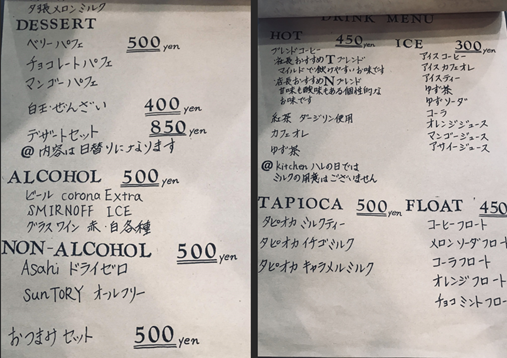 夕張メロンミルク
DESSERT
ベリーパフェ 500 yen
チョコレートパフェ
マンゴーパフェ
白玉ぜんざい 400 yen
デザートセット 850 yen
@ 内容は日替りになります
ALCOHOL 500 yen
ビール corona Extra
SMIRNOFF ICE
グラスワイン 赤・白各種
NON-ALCOHOL 500 yen
Asahi ドライゼロ
SunTORY オールフリー
おつまみセット 500 yen
DRINK MENU
HOT 450 yen
ブレンドコーヒー
社長おすすめTブレンド
マイルドで飲みやすいお味です
店長おすすめNブレンド
苦味も酸味もある個性的な
お味です
紅茶 ダージリン使用
カフェオレ
ゆず茶
@kitchen ハレの日では
ミルクの用意はございません
ICE 300 yen
アイスコーヒー
アイスカフェオレ
アイスティー
ゆず茶
ゆずソーダ
コーラ
オレンジジュース
マンゴージュース
アサイージュース
TAPIOCA 500 yen
タピオカ ミルクティー
タピオカ イチゴミルク
タピオカ キャラメルミルク
FLOAT 450
コーヒーフロート
メロンソーダフロート
コーラフロート
オレンジフロート
チョコミントフロー